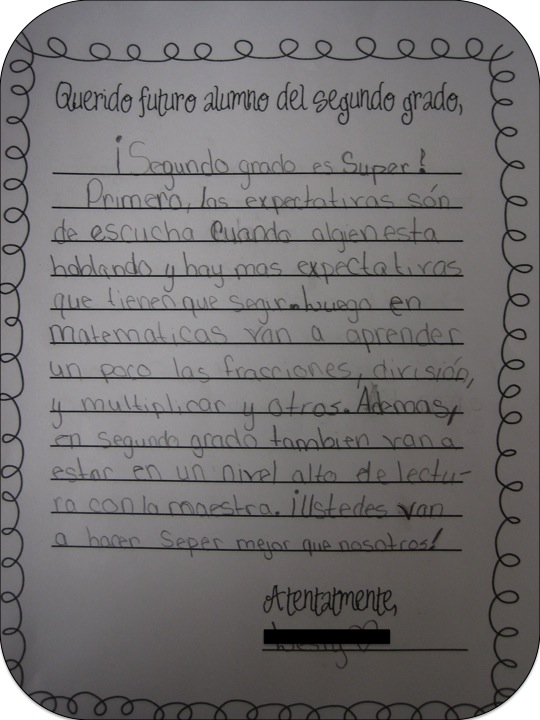 Querido futuro alumno del segundo grado,
¡Segundo grado es Super!
Primero, las expectativas són
de escucha cuando algien esta
hablando y hay mas expectativas
que tienen que segir. Luego en
matematicas van a aprender
un poco las fracciones, división,
y multiplicar y otros. Ademas,
en segundo grado tambien van a
estar en un nivel alto de lectu-
ra con la maestra. ¡Ustedes van
a hacer Seper mejor que nosotros!
Atentatmente,